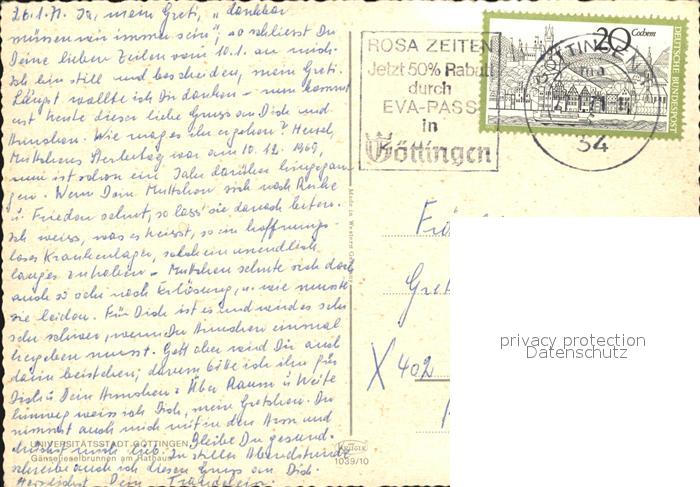 26.1.71. Ja, mein Greti, „dankbar
müssen wir immer sein", so schliesst Du
Deine lieben Zeilen vom 10.1. an mich.
Ich bin still und bescheiden, mein Greti.
Längst wollte ich Dir danken – nun kommt
erst heute dieser liebe Gruss an Dich und
Annchen. Wie mag es ihr ergehen? Heuer,
Muttchens Sterbetag war am 10.12.1969,
nun ist schon ein Jahr darüber hingegan-
gen. Wenn Dein Muttchen sich nach Ruhe
u. Frieden sehnt, so lass' sie danach beten.
Ich weiss, was es heisst, so ein hoffnungs-
loses Krankenlager, solch ein unendlich
langes zu haben – Muttchen sehnte sich doch
auch so sehr nach Erlösung, u. wie musste
sie leiden. Für Dich ist es und wird es sehr
sehr schwer, wenn Du Annchen einmal
hergeben musst. Gott aber wird Dir auch
darin beistehen; darum bitte ich ihn für
Dich u. Dein Annchen. Über Raum u. Weite
hinweg weiss ich Dich, mein Gretchen. Du
nimmst auch mich mit in den Arm und
mich lieb. Bleibe Du gesund.
In stiller Abendstunde
schreibe auch ich diesen Gruss an Dich.
Herzlichst Dein
UNIVERSITÄTSSTADT GÖTTINGEN
Gänselieselbrunnen am Rathaus
ROSA ZEITEN
Jetzt 50% Rabatt
durch
EVA-PASS
in
Göttingen
GÖTTINGEN
34
20 Cochem
DEUTSCHE BUNDESPOST
Made in Western
X 402
KRÜGER
1039/10
privacy protection
Datenschutz